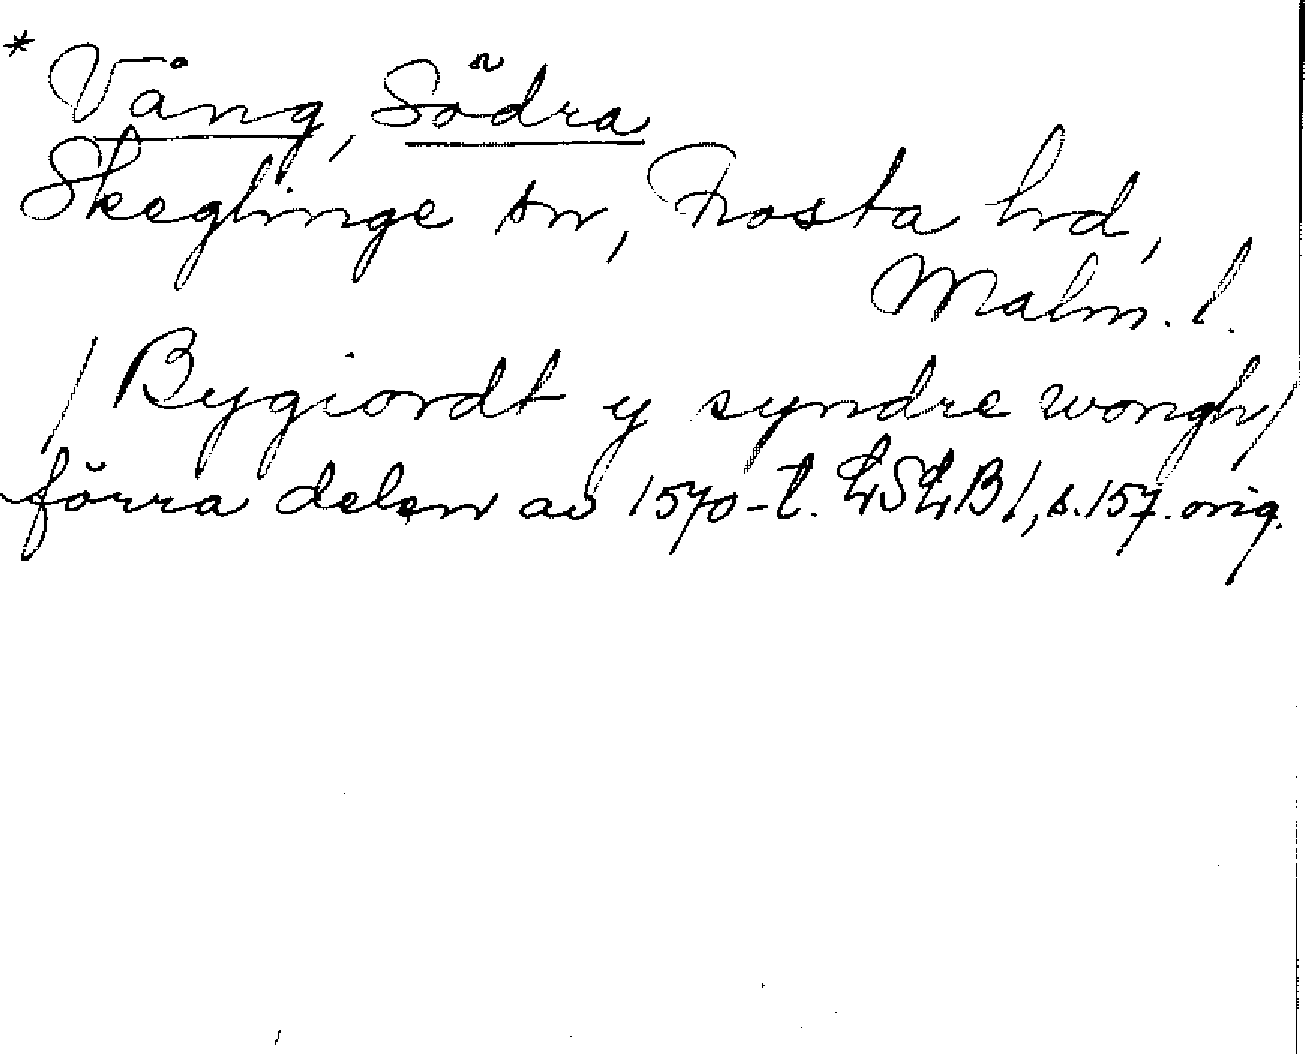 * Vång, Södra
Skeglinge sn, Frosta hd,
Malm. l.
/ Bygiordt y syndre wongh /
förra delen av 1570-t. LSLB 1, s. 157. orig.